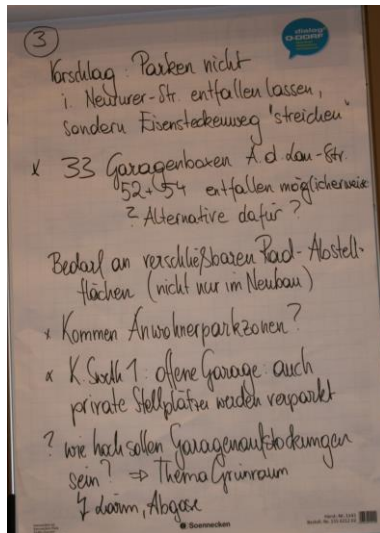 3
dialog
Vorschlag: Parken nicht
i. Neusurer-Str. entfallen lassen,
sondern Eisensteckenweg "streichen"
x 33 Garagenboxen A.d.Lau-Str.
52+54 entfallen möglicherweise
? Alternative dafür?
Bedarf an verschließbaren Rad-Abstell-
flächen (nicht nur im Neubau)
x Kommen Anwohnerparkzonen?
x K. 1: offene Garage: auch
private Stellplätze werden verparkt
? wie hoch sollen Garagenaufstockungen
sein? ⇒ Thema Grünraum
Lärm, Abgase
Soennecken